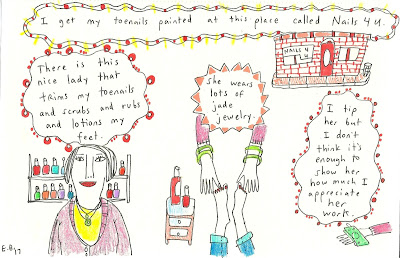 I get my toenails painted at this place called Nails 4 U.
NAILS
4 U
There is this
nice lady that
trims my toenails
and scrubs and rubs
and lotions my
feet.
She wears
lots of
jade
jewelry.
I tip
her but
I don't
think it's
enough to
show her
how much I
appreciate
her
work.